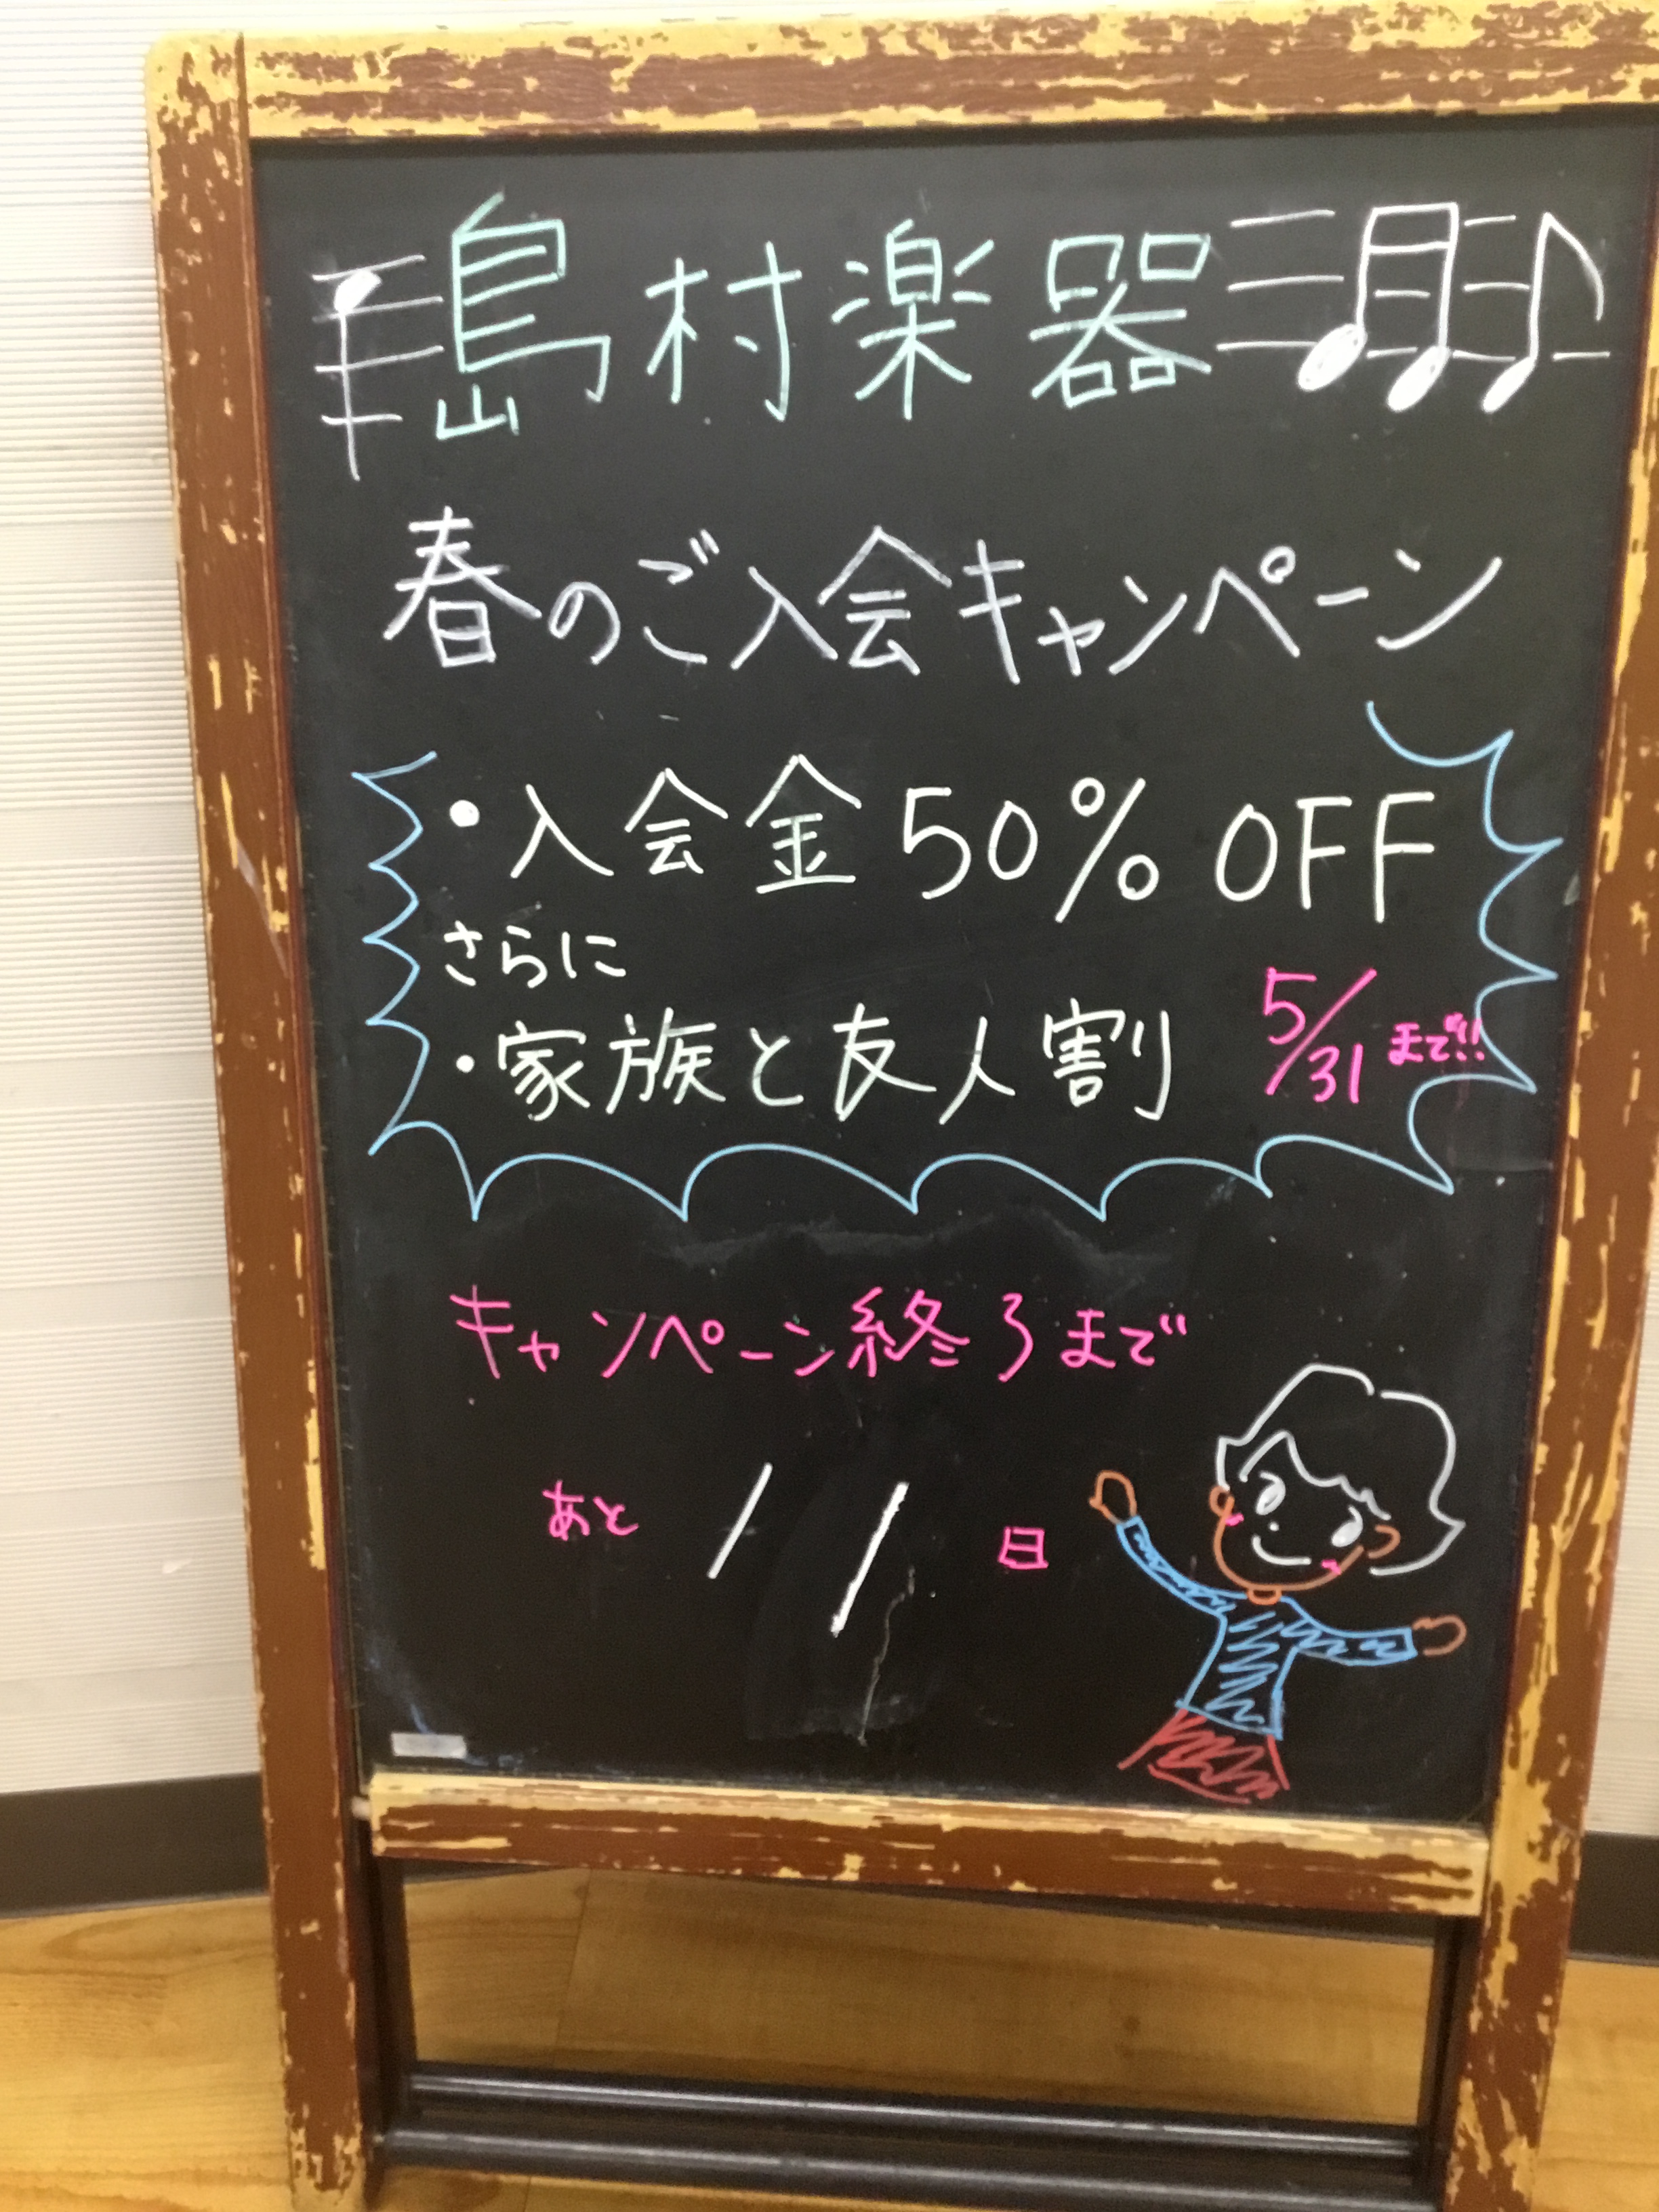 島村楽器
春のご入会キャンペーン
・入会金50% OFF
さらに
・家族と友人割 5/31まで!!
キャンペーン終了まで
あと 11 日